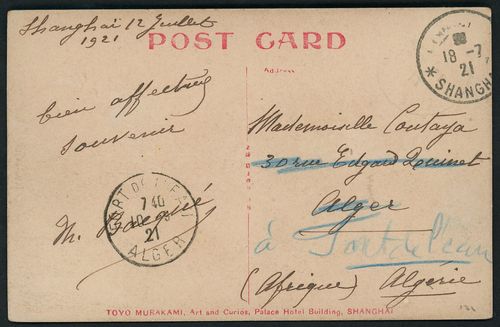 Shanghai 12 Juillet
1921
POST CARD
Address
18-7
21
SHANGH
bien affectueux
souvenir
Mademoiselle Coutaya
30 rue Edgard Quinet
Alger
à Fort de l'eau
(Afrique) Algérie
FORT DE L'EAU
7 40
21
ALGER
M.
TOYO MURAKAMI, Art and Curios, Palace Hotel Building, SHANGHAI